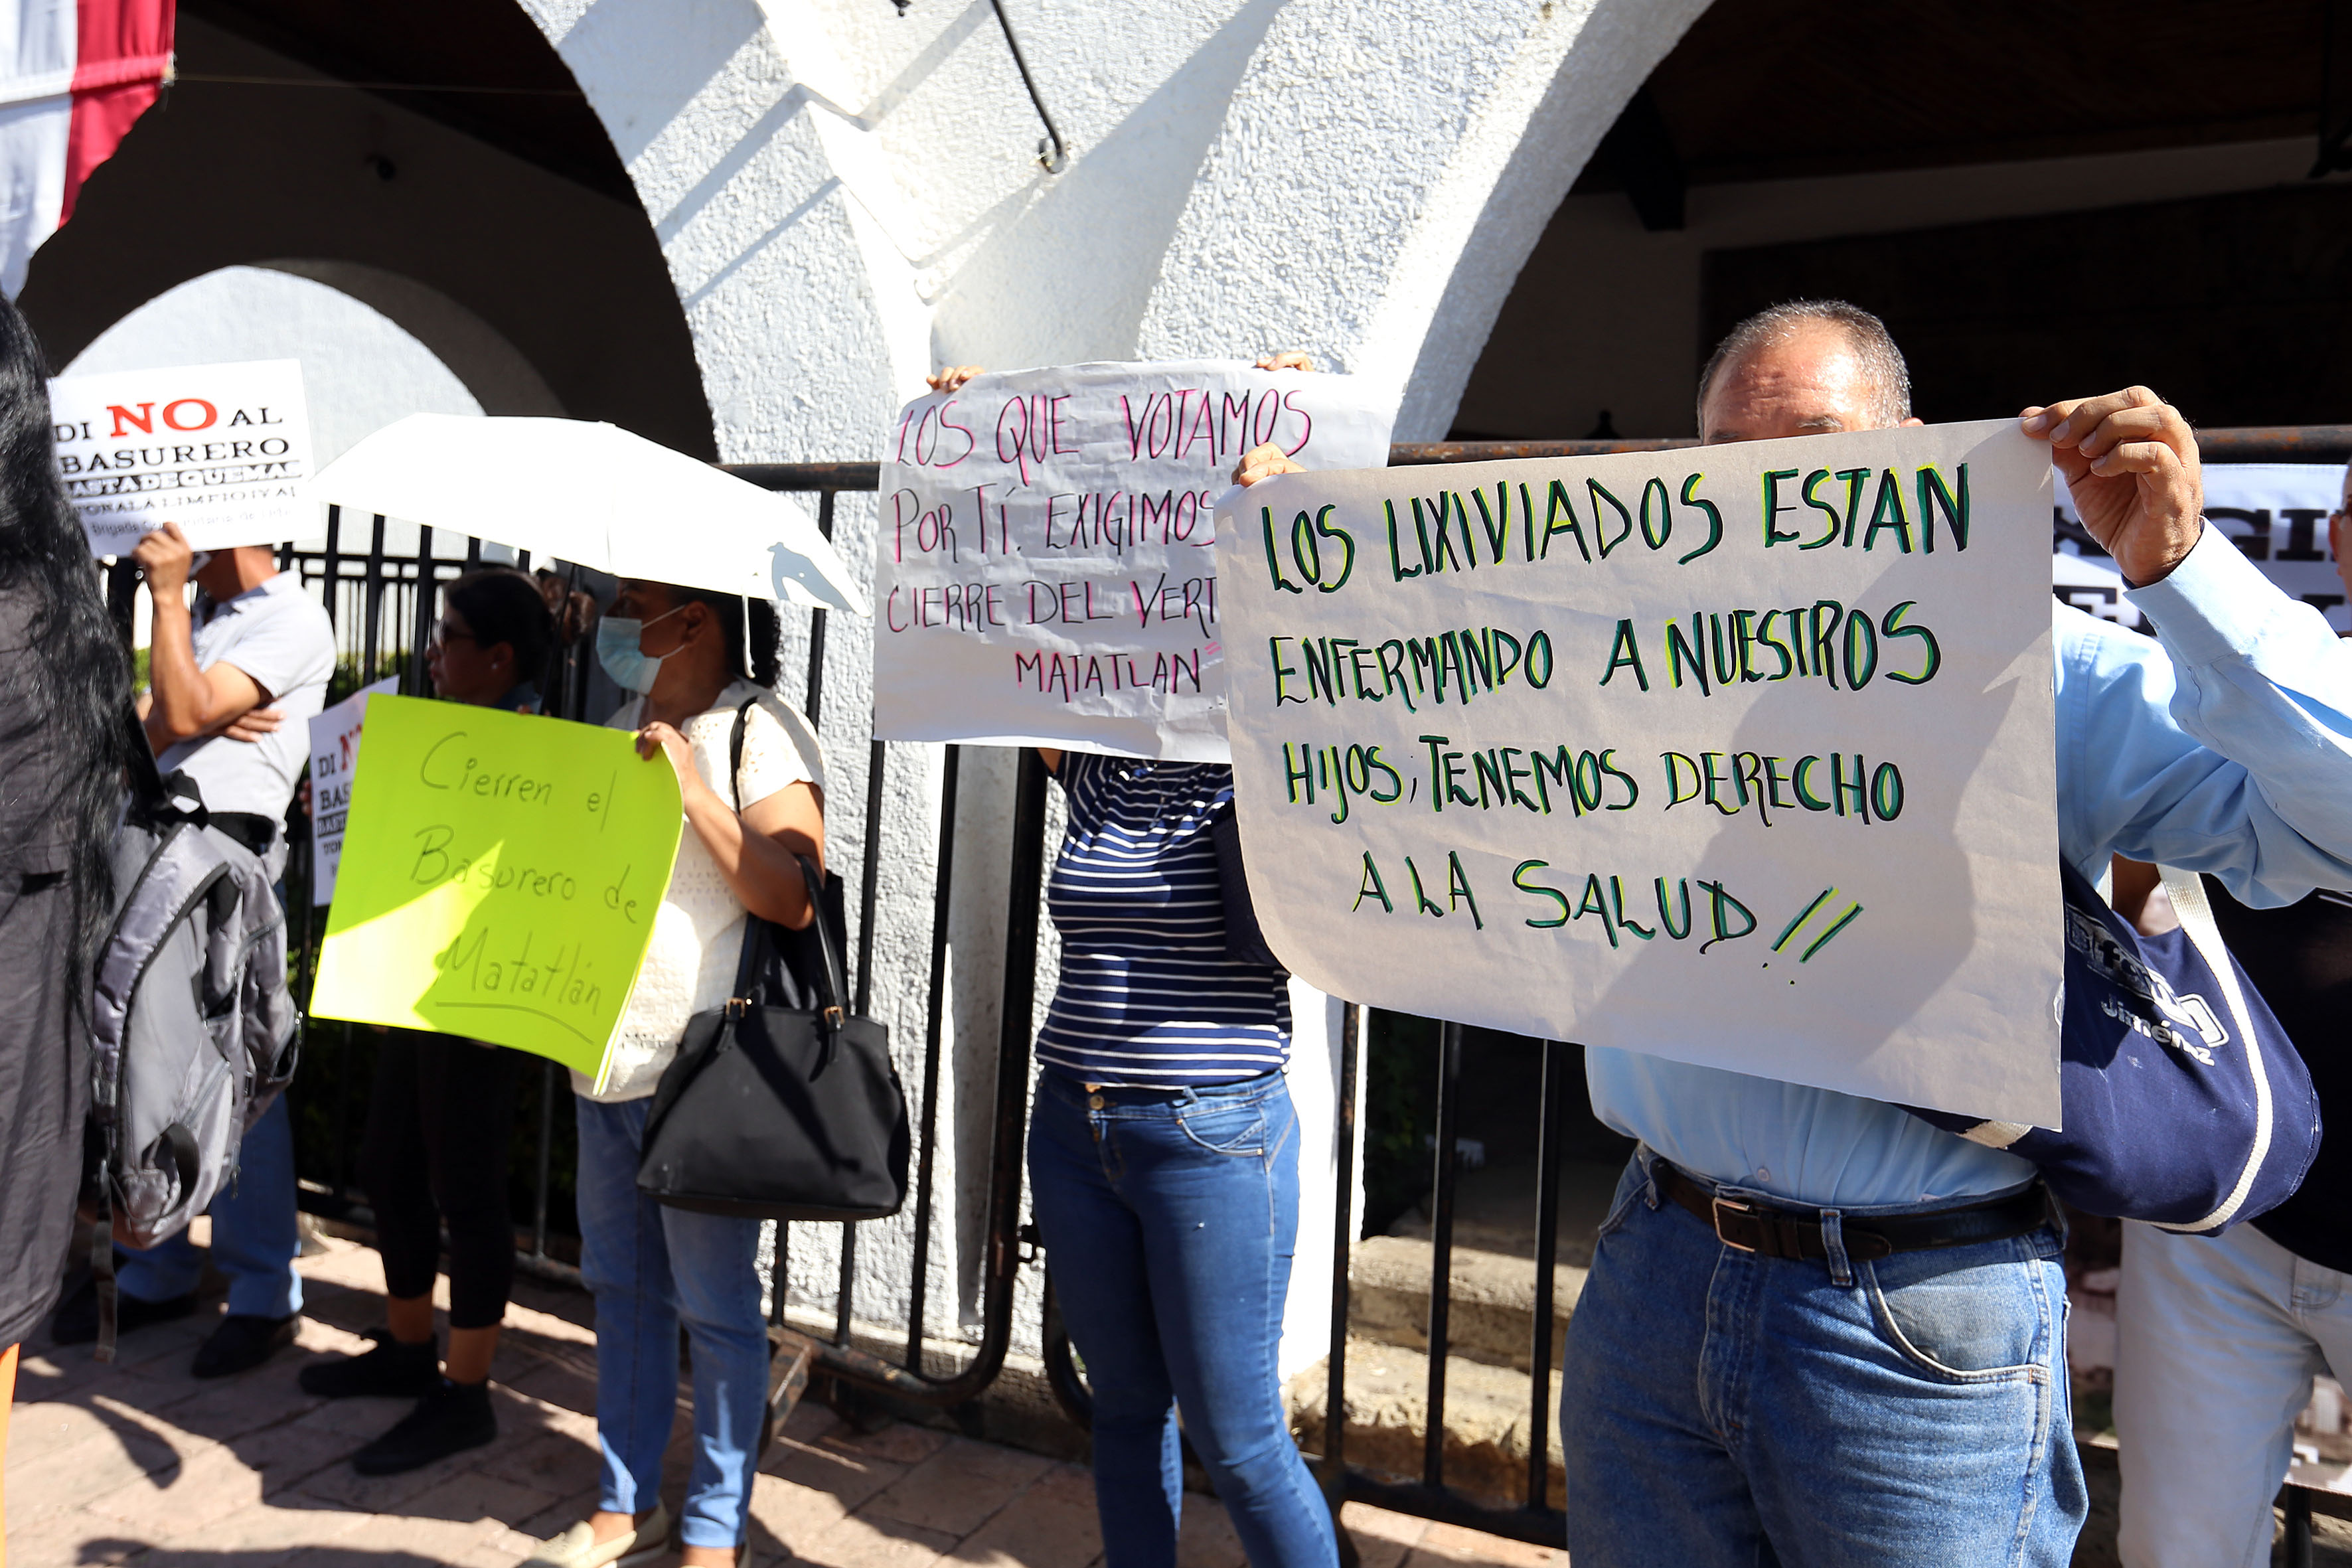 DI NO AL
BASURERO
BASTA DE QUEMAS
TONALÁ LIMPIO ¡YA!
DI
BAS
Cierren el
Basurero de
Matatlán
LOS QUE VOTAMOS
POR TÍ. EXIGIMOS
CIERRE DEL VERT
MATATLAN
LOS LIXIVIADOS ESTAN
ENFERMANDO A NUESTROS
HIJOS, TENEMOS DERECHO
A LA SALUD!!
Jiménez